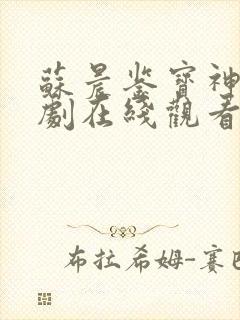 蘇晨鉴寶神
劇在綫觀看
布拉希姆-赛巴